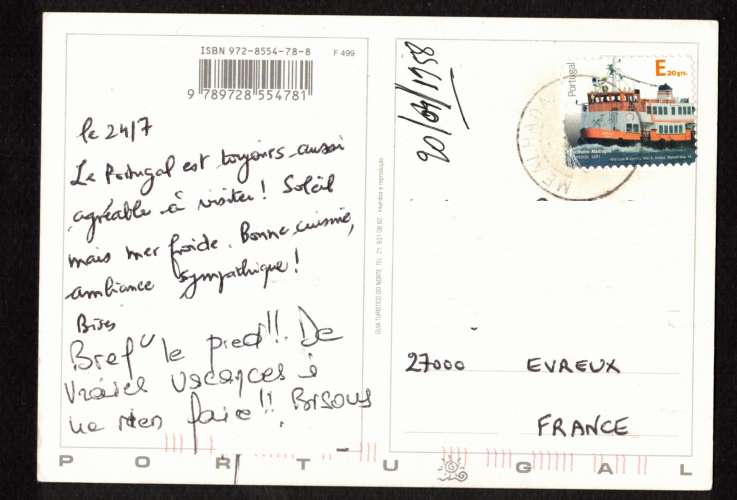 ISBN 972-8554-78-8
F 499
9 789728 554781
le 24/7
Le Portugal est toujours aussi
agréable à visiter! Soleil
mais mer froide. Bonne cuisine,
ambiance sympathique!
Bises
Bref" le pied!! De
Vraies vacances à
ne rien faire!! Bisous
20/04/1958
Portugal
E20grs.
MEALHADA
27000 EVREUX
FRANCE
PORTUGAL